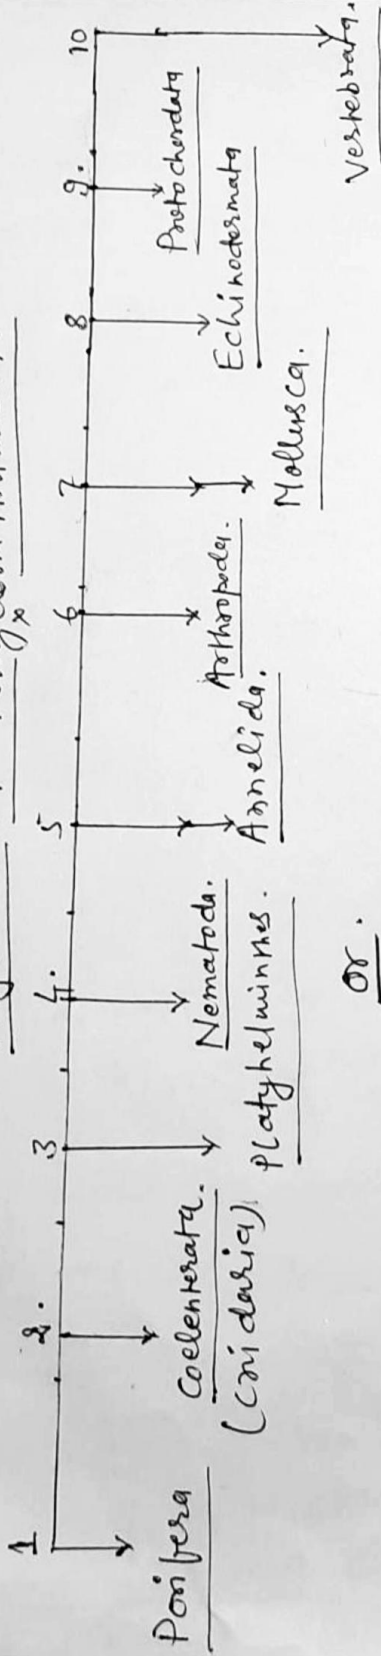 1 2. 3 4. 5 6 7 8 9. 10
Porifera
Coelenterata.
(cnidaria)
Platyhelminthes.
Nematoda.
Annelida.
Arthropoda.
Mollusca.
Echinodermata
Protochordata
Vertebrata.
or.